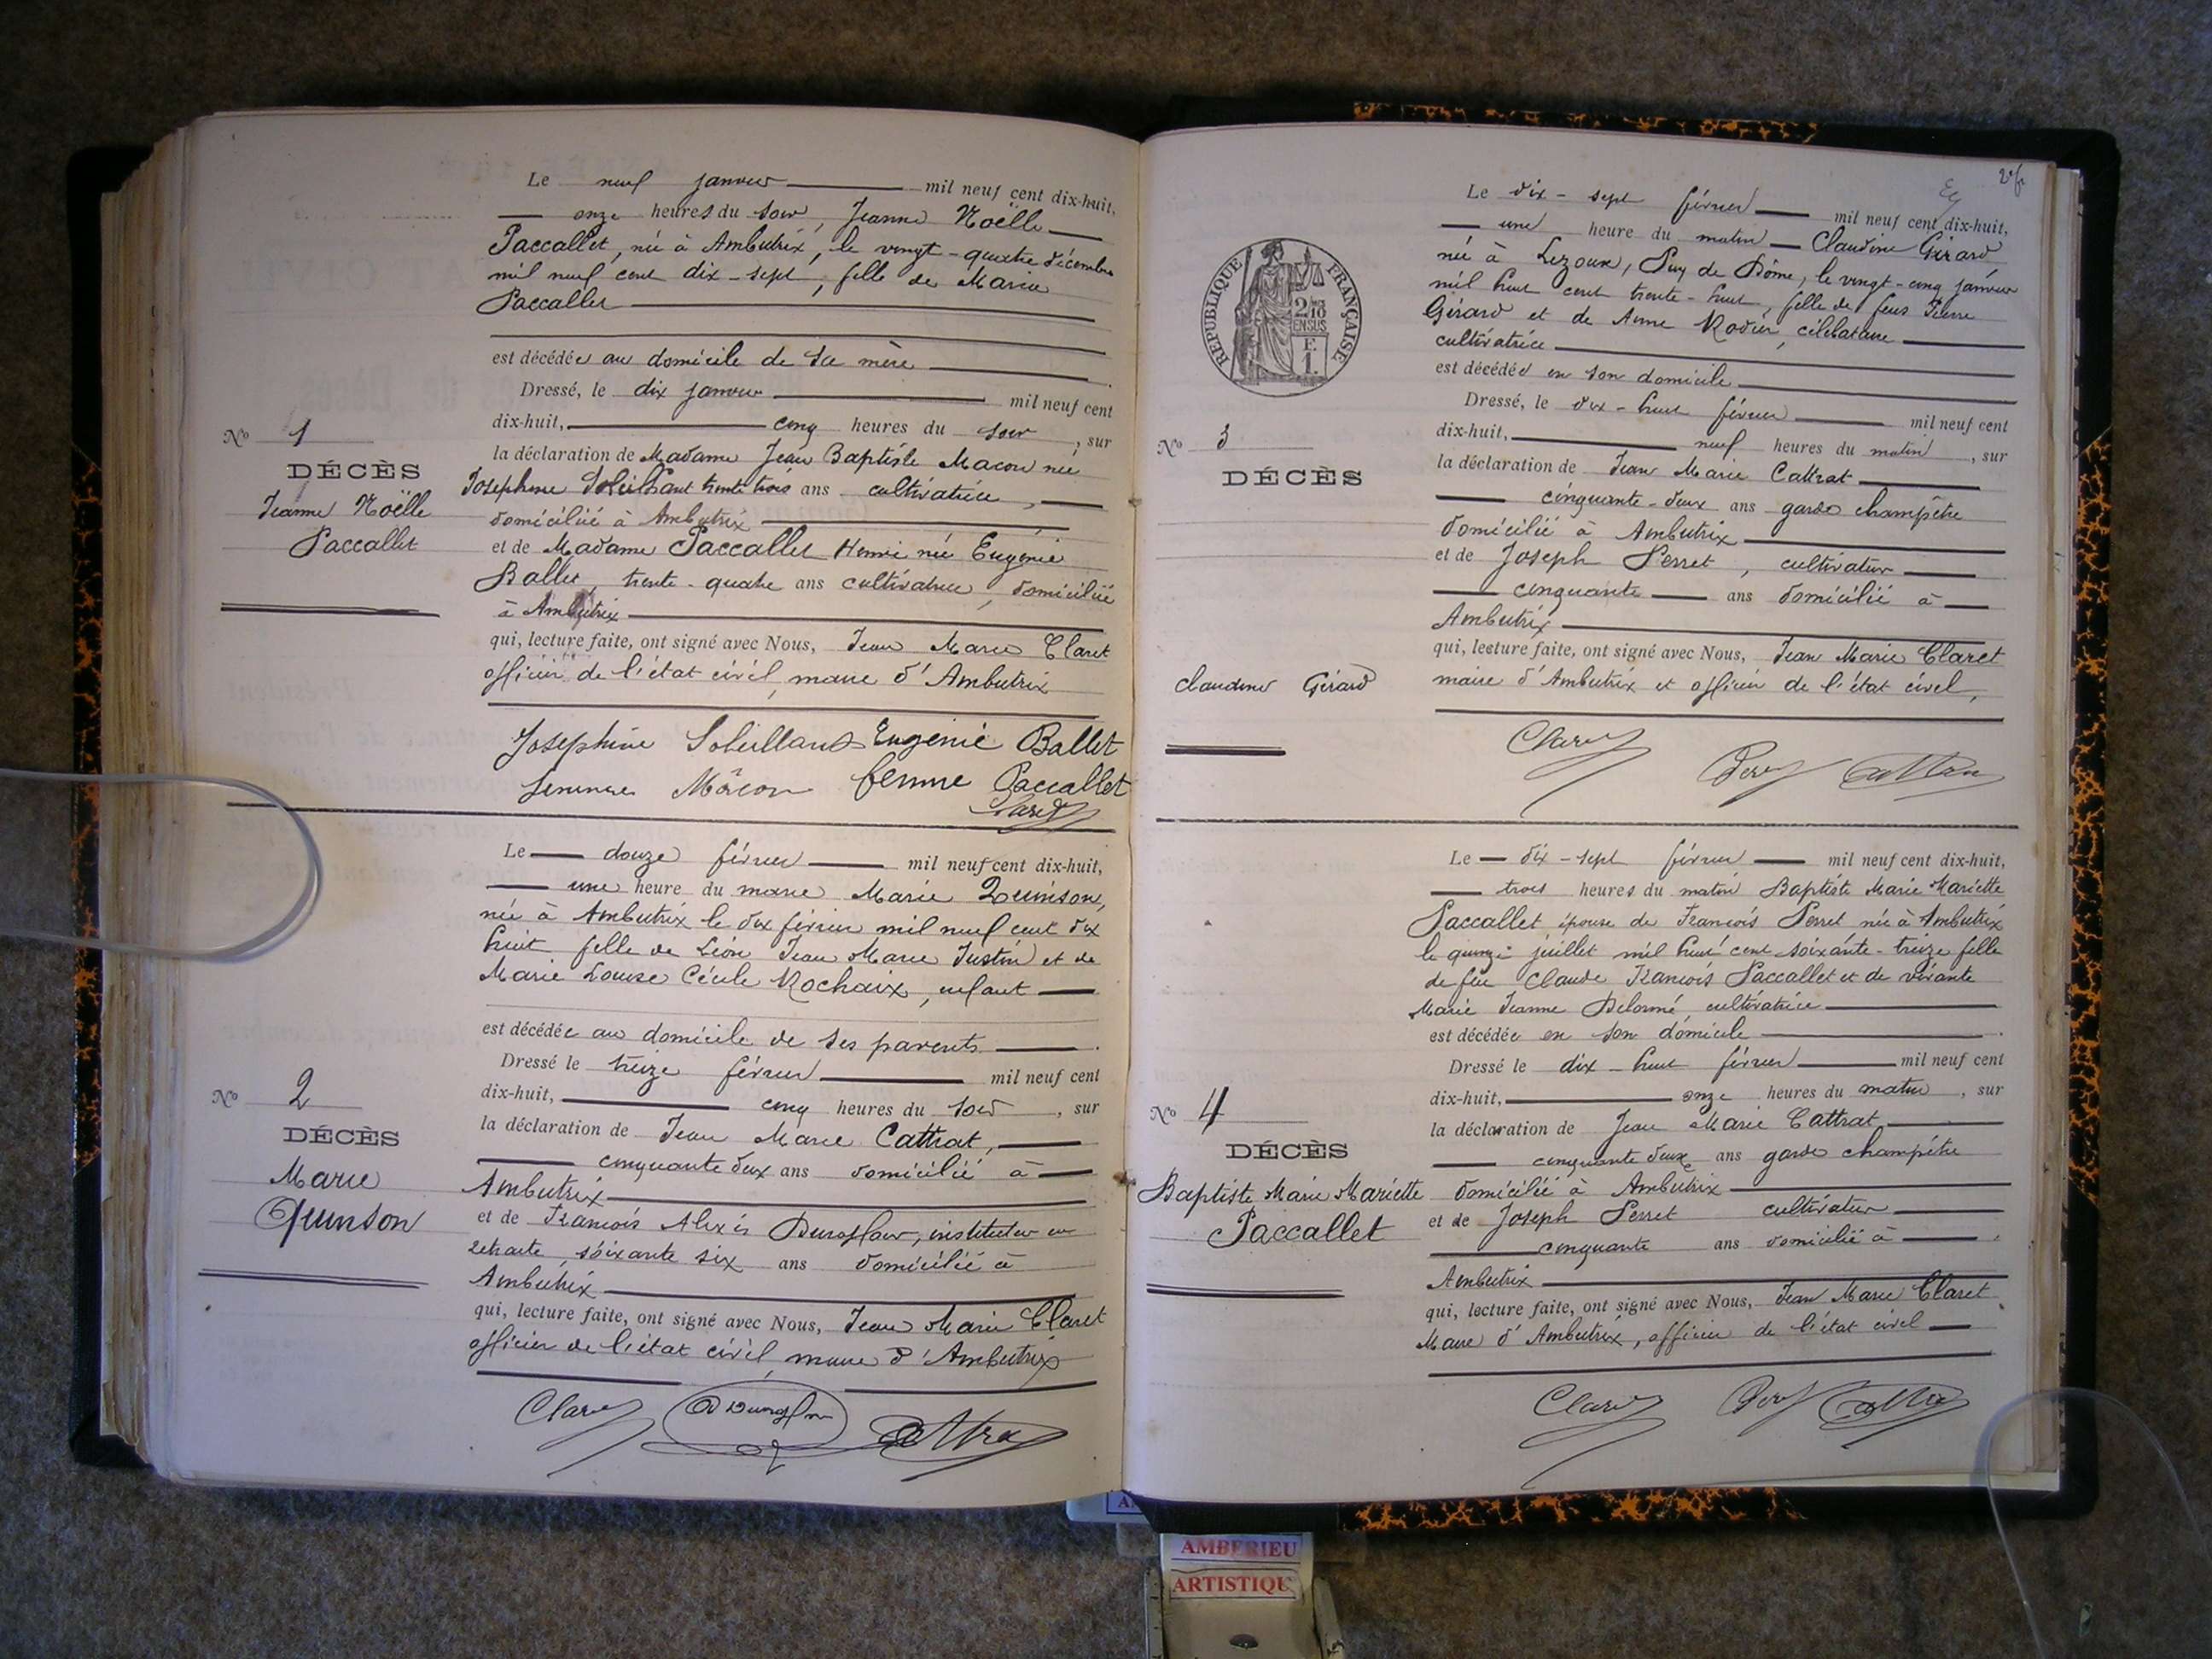 Le neuf janvier mil neuf cent dix-huit,
onze heures du soir, Jeanne Noëlle
Paccallet, née à Ambutrix, le vingt-quatre décembre
mil neuf cent dix-sept, fille de Marie
Paccallet
est décédée au domicile de sa mère
Dressé, le dix janvier mil neuf cent
dix-huit, cinq heures du soir, sur
la déclaration de Madame Jean Baptiste Macon née
Josephine trente trois ans cultivatrice,
domiciliée à Ambutrix
et de Madame Paccallet Henri née Eugénie
Ballet, trente-quatre ans cultivatrice, domiciliée
à Ambutrix
qui, lecture faite, ont signé avec Nous, Jean Marie Claret
officier de l'état civil, maire d'Ambutrix
No 1
DÉCÈS
Jeanne Noëlle
Paccallet
Josephine Eugénie Ballet
Mâcon femme Paccallet
Claret
Le douze février mil neuf cent dix-huit,
une heure du Marie Quinson,
née à Ambutrix le dix février mil neuf cent dix
huit fille de Léon Jean Marie Justin et de
Marie Louise Cécile Rochaix, enfant
est décédée au domicile de ses parents.
Dressé le treize février mil neuf cent
dix-huit, cinq heures du soir, sur
la déclaration de Jean Marie Cattrat,
cinquante deux ans domicilié à
Ambutrix
et de François Alexis instituteur en
retraite, soixante six ans domicilié à
Ambutrix
qui, lecture faite, ont signé avec Nous, Jean Marie Claret
officier de l'état civil, maire d'Ambutrix
No 2
DÉCÈS
Marie
Quinson
Claret
Le dix-sept février mil neuf cent dix-huit,
une heure du matin Claudine Girard
née à Lezoux, Puy de Dôme, le vingt-cinq janvier
mil huit cent trente-huit, fille de feus Pierre
Girard et de Anne Rodier, célibataire
cultivatrice
est décédée en son domicile
Dressé, le dix-huit février mil neuf cent
dix-huit, neuf heures du matin, sur
la déclaration de Jean Marie Cattrat
cinquante-deux ans garde champêtre
domicilié à Ambutrix
et de Joseph Perret, cultivateur
cinquante ans domicilié à
Ambutrix
qui, lecture faite, ont signé avec Nous, Jean Marie Claret
maire d'Ambutrix et officier de l'état civil,
RÉPUBLIQUE FRANÇAISE
No 3
DÉCÈS
Claudine Girard
Claret
Le dix-sept février mil neuf cent dix-huit,
trois heures du matin Baptiste Marie Mariette
Paccallet épouse de François Perret née à Ambutrix
le quinze juillet mil huit cent soixante-treize fille
de feu Claude François Paccallet et de vivante
Marie Jeanne Delormé, cultivatrice
est décédée en son domicile
Dressé le dix-huit février mil neuf cent
dix-huit, onze heures du matin, sur
la déclaration de Jean Marie Cattrat
cinquante deux ans garde champêtre
domicilié à Ambutrix
et de Joseph Perret cultivateur
cinquante ans domicilié à
Ambutrix
qui, lecture faite, ont signé avec Nous, Jean Marie Claret
Maire d'Ambutrix, officier de l'état civil
No 4
DÉCÈS
Baptiste Marie Mariette
Paccallet
Claret
AMBERIEU
ARTISTIQU